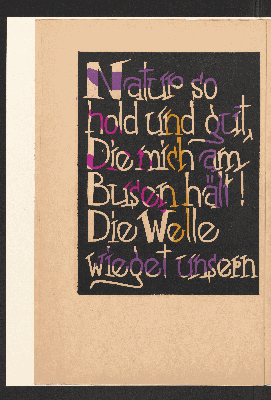 Natur so
hold und gut,
Die mich am
Busen hält!
Die Welle
wieget unsern